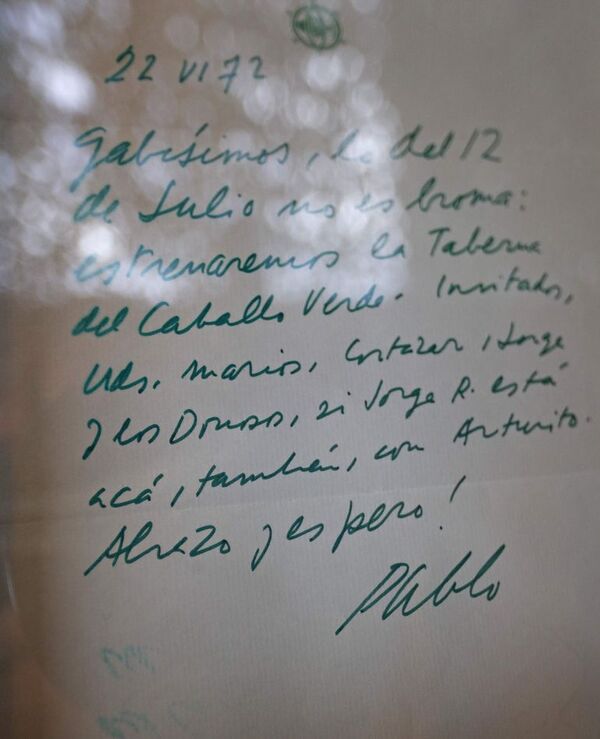 22 VI 72
Gabísimos, lo del 12
de Julio no es broma:
estrenaremos la Taberna
del Caballo Verde. Invitados,
Uds. Marios, Cortázar, Jorge
y los Donoso, si Jorge E. está
acá, también, con Arturito.
Abrazo y espero!
Pablo